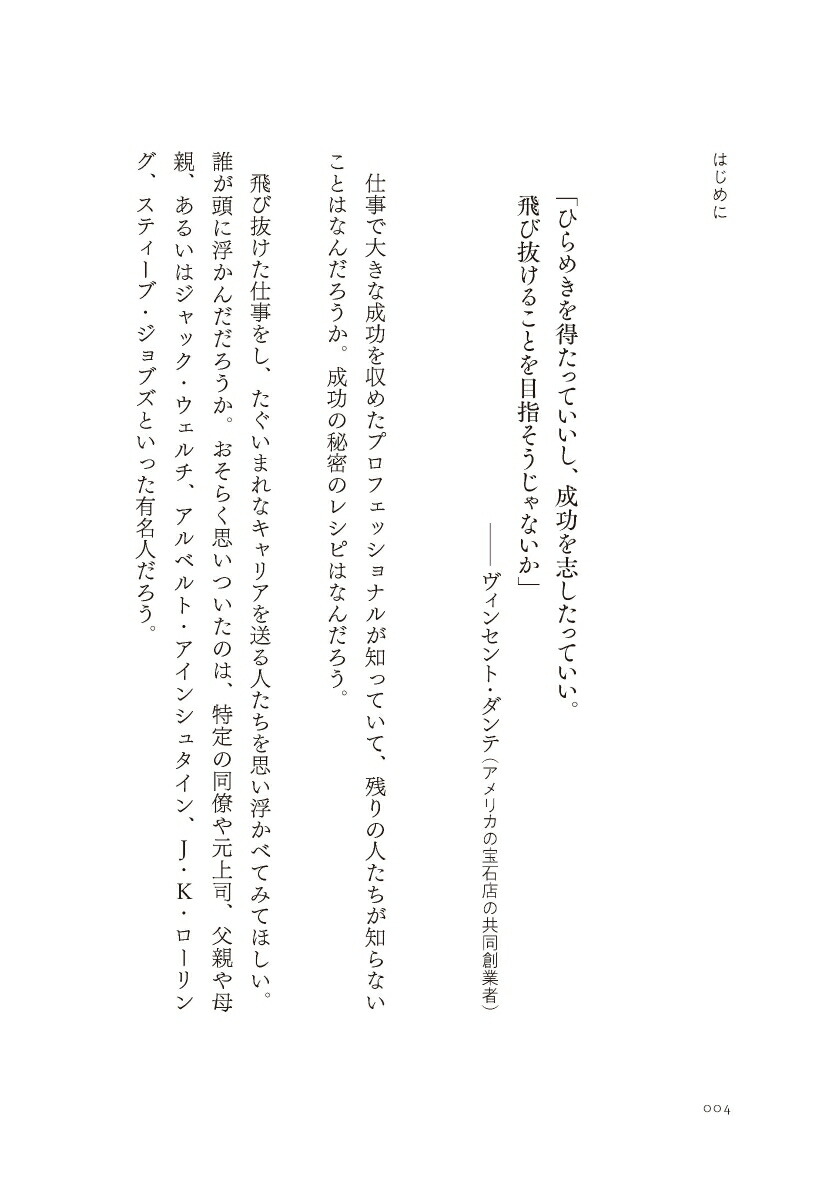 はじめに
「ひらめきを得たっていいし、成功を志したっていい。
飛び抜けることを目指そうじゃないか」
――ヴィンセント・ダンテ（アメリカの宝石店の共同創業者）
仕事で大きな成功を収めたプロフェッショナルが知っていて、残りの人たちが知らない
ことはなんだろうか。成功の秘密のレシピはなんだろう。
飛び抜けた仕事をし、たぐいまれなキャリアを送る人たちを思い浮かべてみてほしい。
誰が頭に浮かんだだろうか。おそらく思いついたのは、特定の同僚や元上司、父親や母
親、あるいはジャック・ウェルチ、アルベルト・アインシュタイン、J・K・ローリン
グ、スティーブ・ジョブズといった有名人だろう。
004